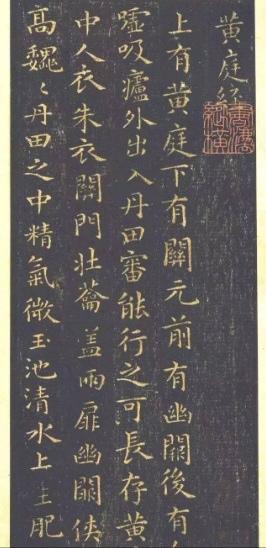 黄庭經
上有黄庭下有關元前有幽闕後有
嘘吸廬外出入丹田審能行之可長存黄
中人衣朱衣關門壮蘥盖兩扉幽闕侠
高巍〻丹田之中精氣微玉池清水上生肥